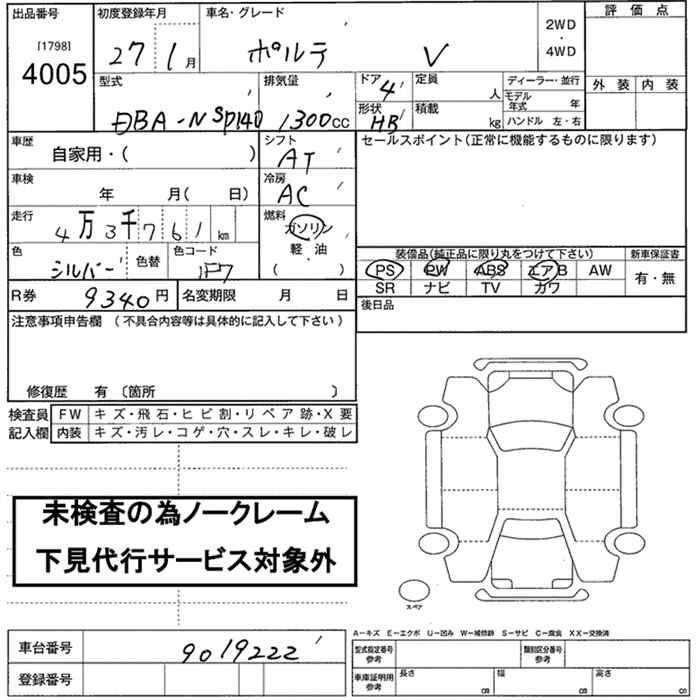 出品番号
[1798]
4005
初度登録年月
27 / 1 月
車名・グレード
ポルテ V
2WD
・
4WD
評価点
外装 内装
型式
DBA-NSP140
排気量
1300cc
ドア
4
形状
HB
定員
人
積載
kg
ディーラー・並行
モデル年式 年
ハンドル 左・右
車歴
自家用・( )
シフト
AT
セールスポイント(正常に機能するものに限ります)
車検
年 月( 日)
冷房
AC
走行
4万3千761km
燃料
ガソリン
軽・油
( )
色
シルバー
色替
色コード
1F7
装備品(純正品に限り丸をつけて下さい)
PS PW ABS エアB AW
SR ナビ TV カワ
新車保証書
有・無
R券
9340円
名変期限 月 日
後日品
注意事項申告欄 (不具合内容等は具体的に記入して下さい)
修復歴 有 〔箇所 〕
検査員記入欄
FW キズ・飛石・ヒビ割・リペア跡・X要
内装 キズ・汚レ・コゲ・穴・スレ・キレ・破レ
未検査の為ノークレーム
下見代行サービス対象外
スペア
A−キズ E−エクボ U−凹み W−補修跡 S−サビ C−腐食 XX−交換済
車台番号
9019222
登録番号
型式指定番号
参考
類別区分番号
参考
車庫証明用
参考
長さ cm
幅 cm
高さ cm